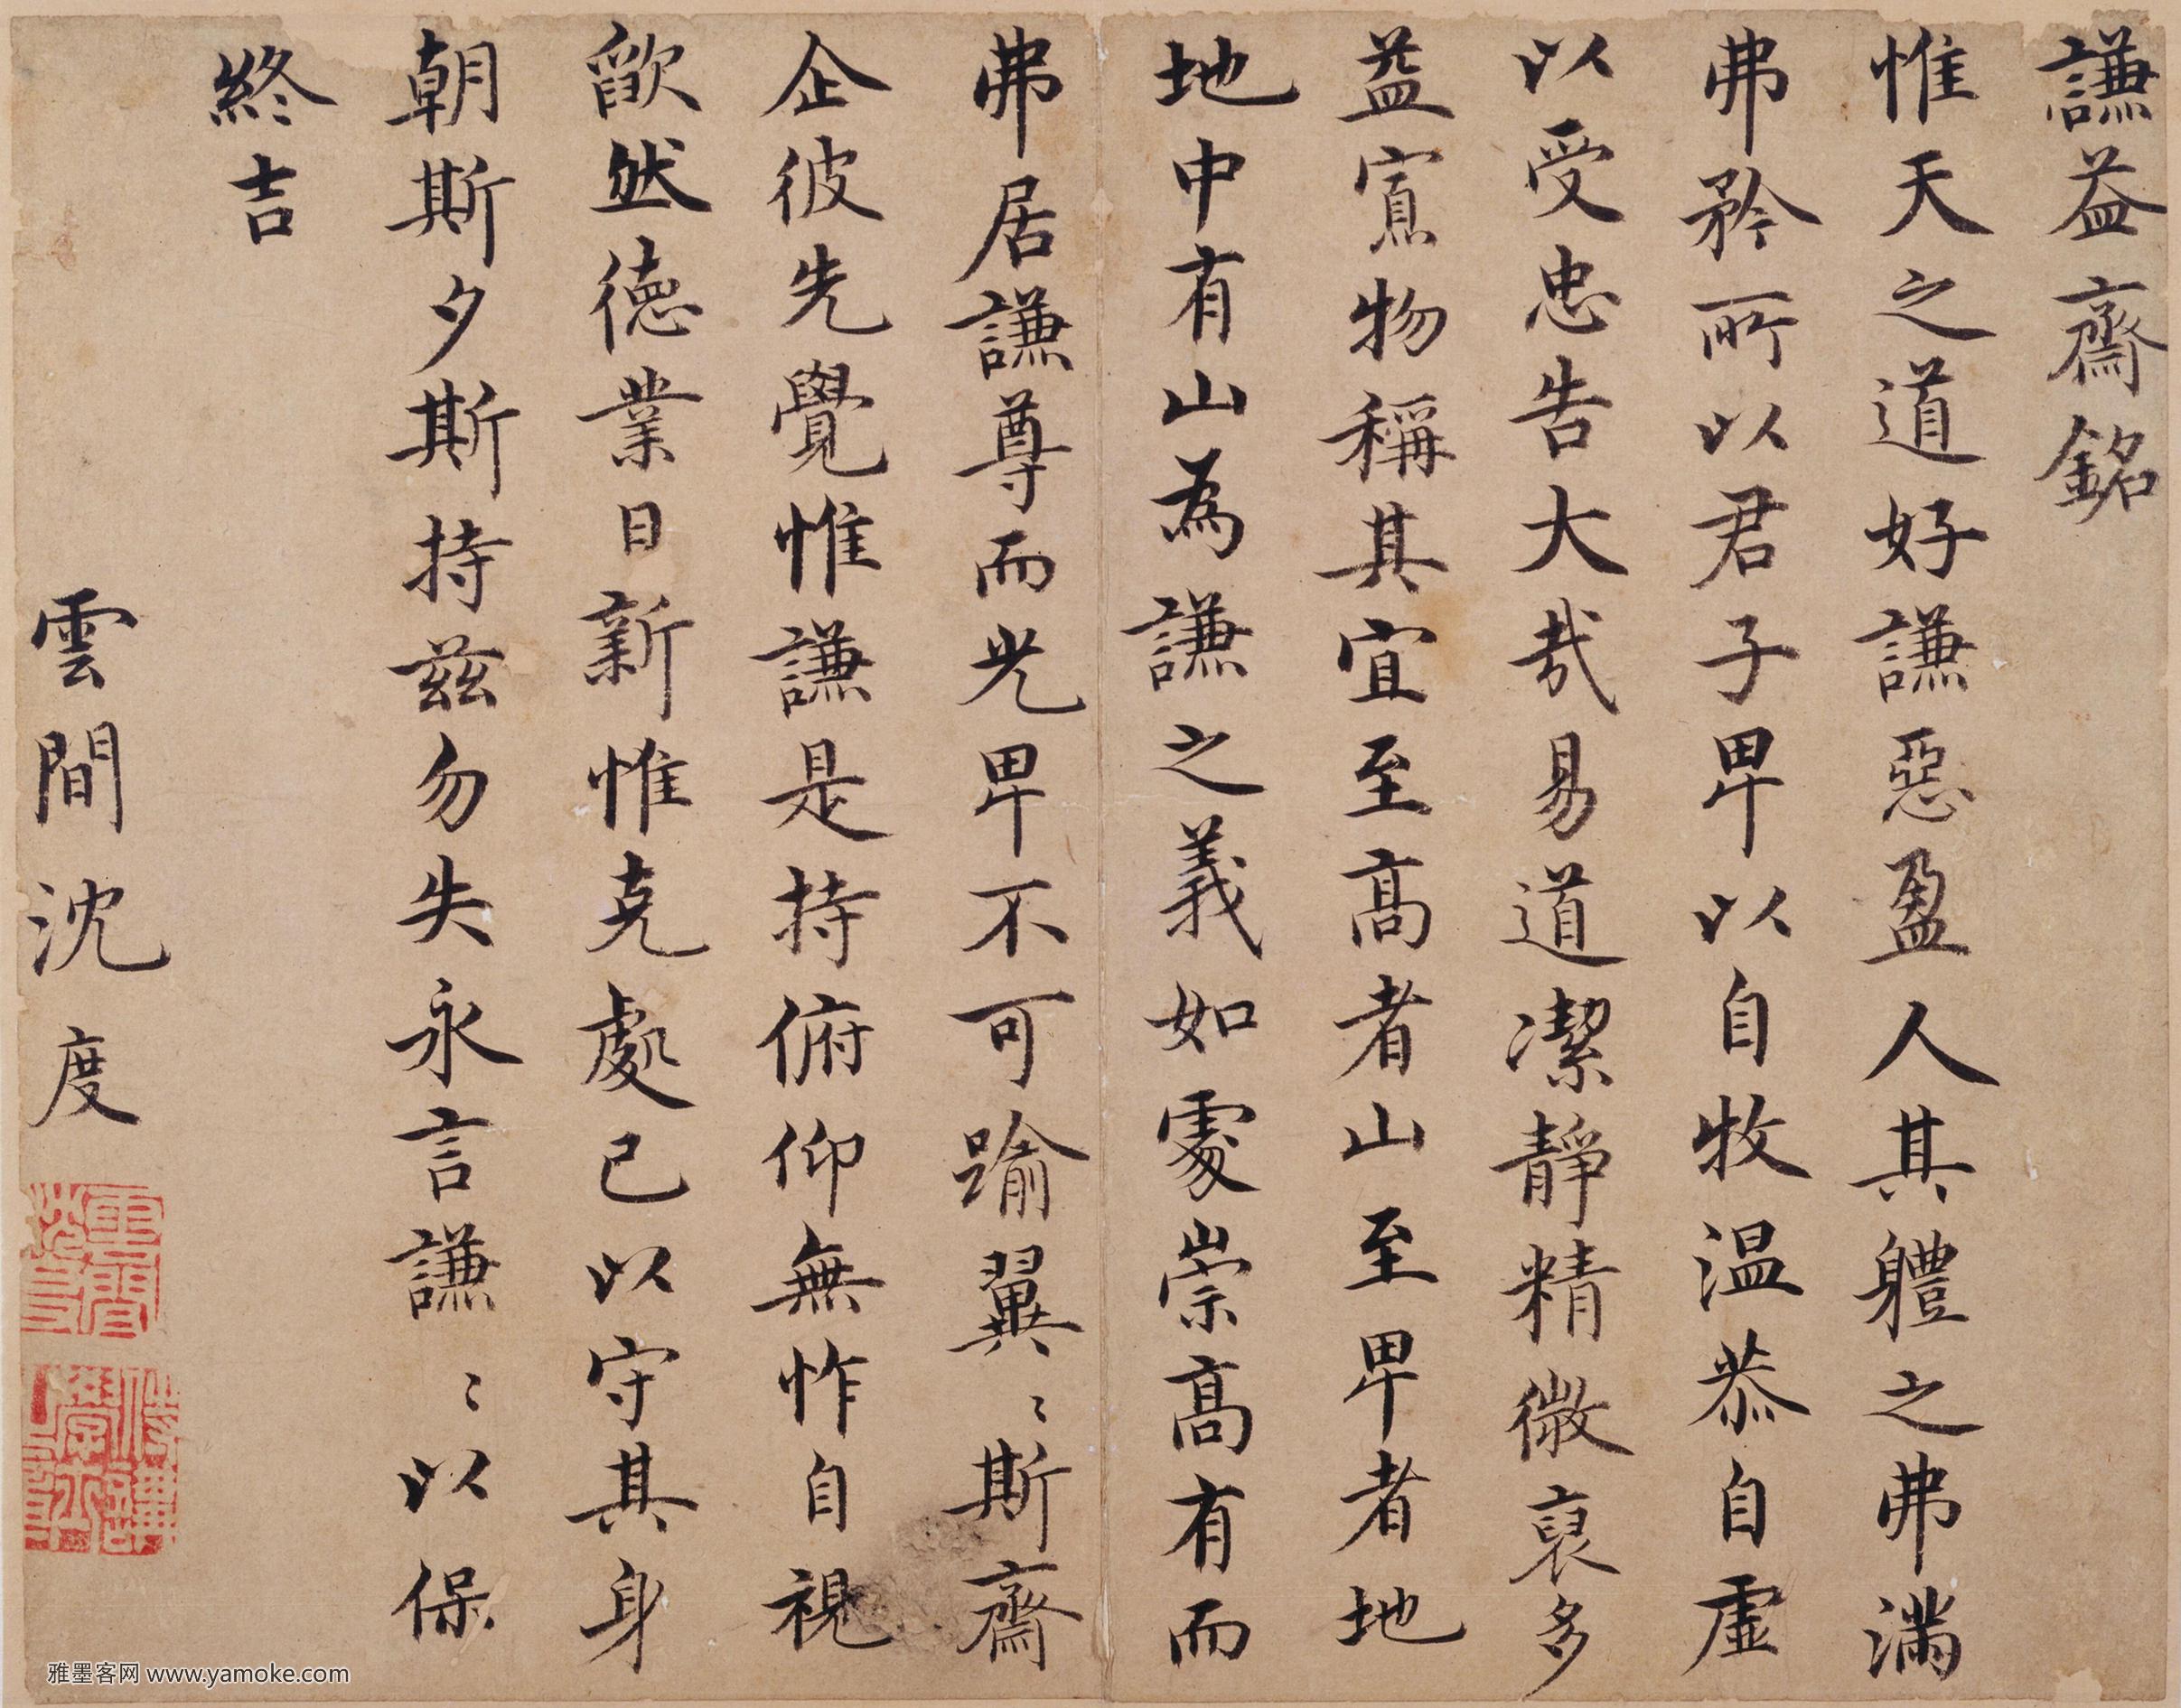 謙益齋銘
惟天之道好謙惡盈人其軆之弗滿
弗矜所以君子卑以自牧温恭自虛
以受忠告大哉易道潔靜精微裒多
益寡物稱其宜至高者山至卑者地
地中有山為謙之義如處崇高有而
弗居謙尊而光卑不可踰翼〻斯齋
企彼先覺惟謙是持俯仰無怍自視
歃然德業日新惟克處己以守其身
朝斯夕斯持茲勿失永言謙〻以保
終吉
雲間沈度
雅墨客网 www.yamoke.com